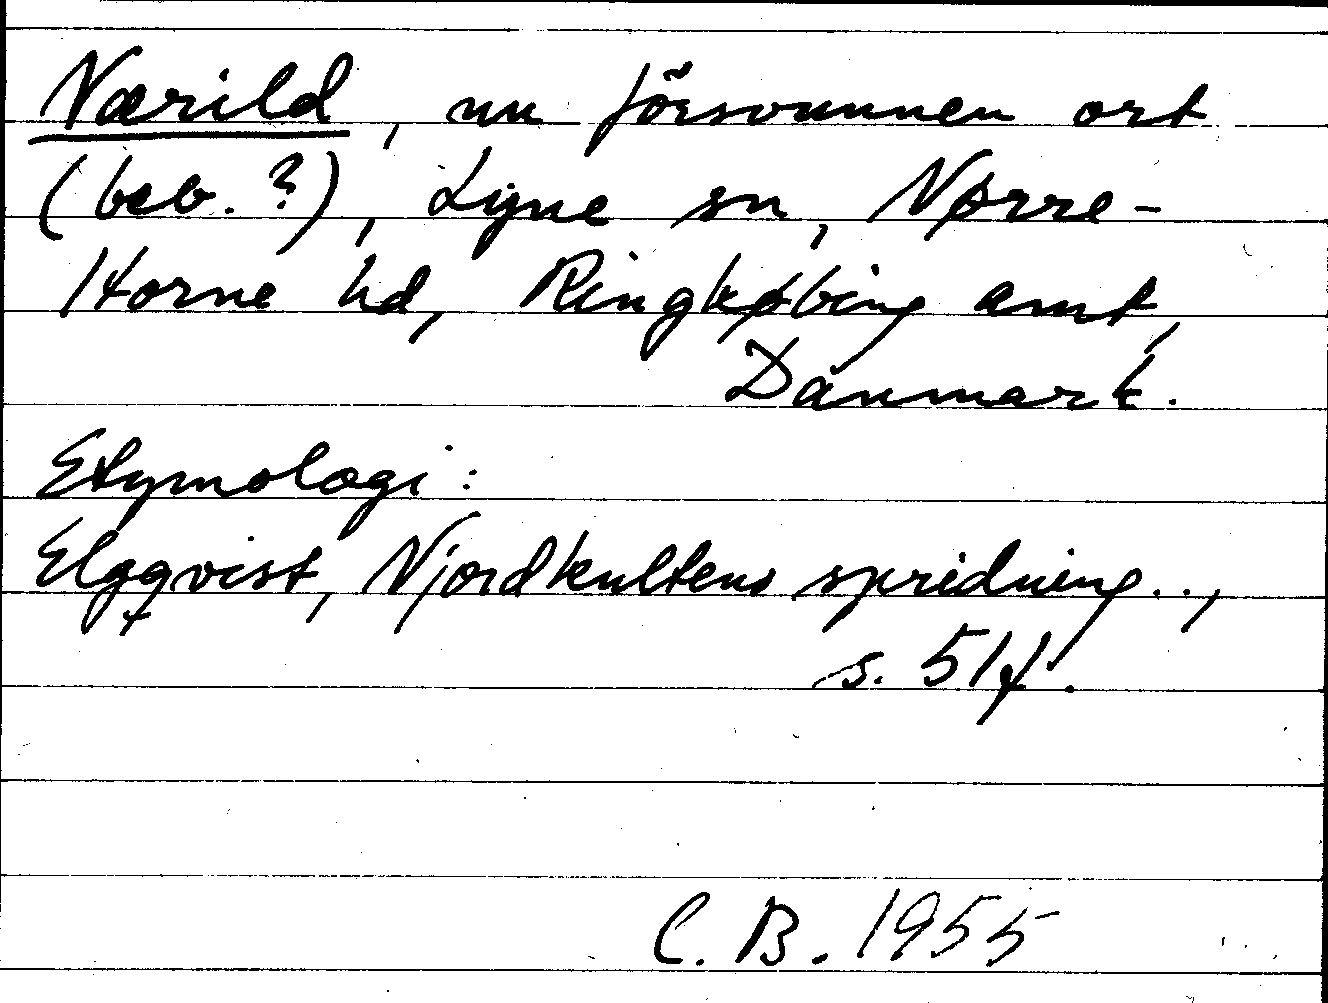 Nærild, nu försvunnen ort
(beb. ?), Lyne sn, Nørre-
Horne hd, Ringkøbing amt,
Danmark.
Etymologi:
Elgqvist, Njordkultens spridning..,
s. 51f.
C. B. 1955